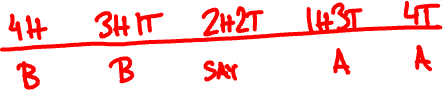 4H 3H1T 2H2T 1H3T 4T
B B SAY A A